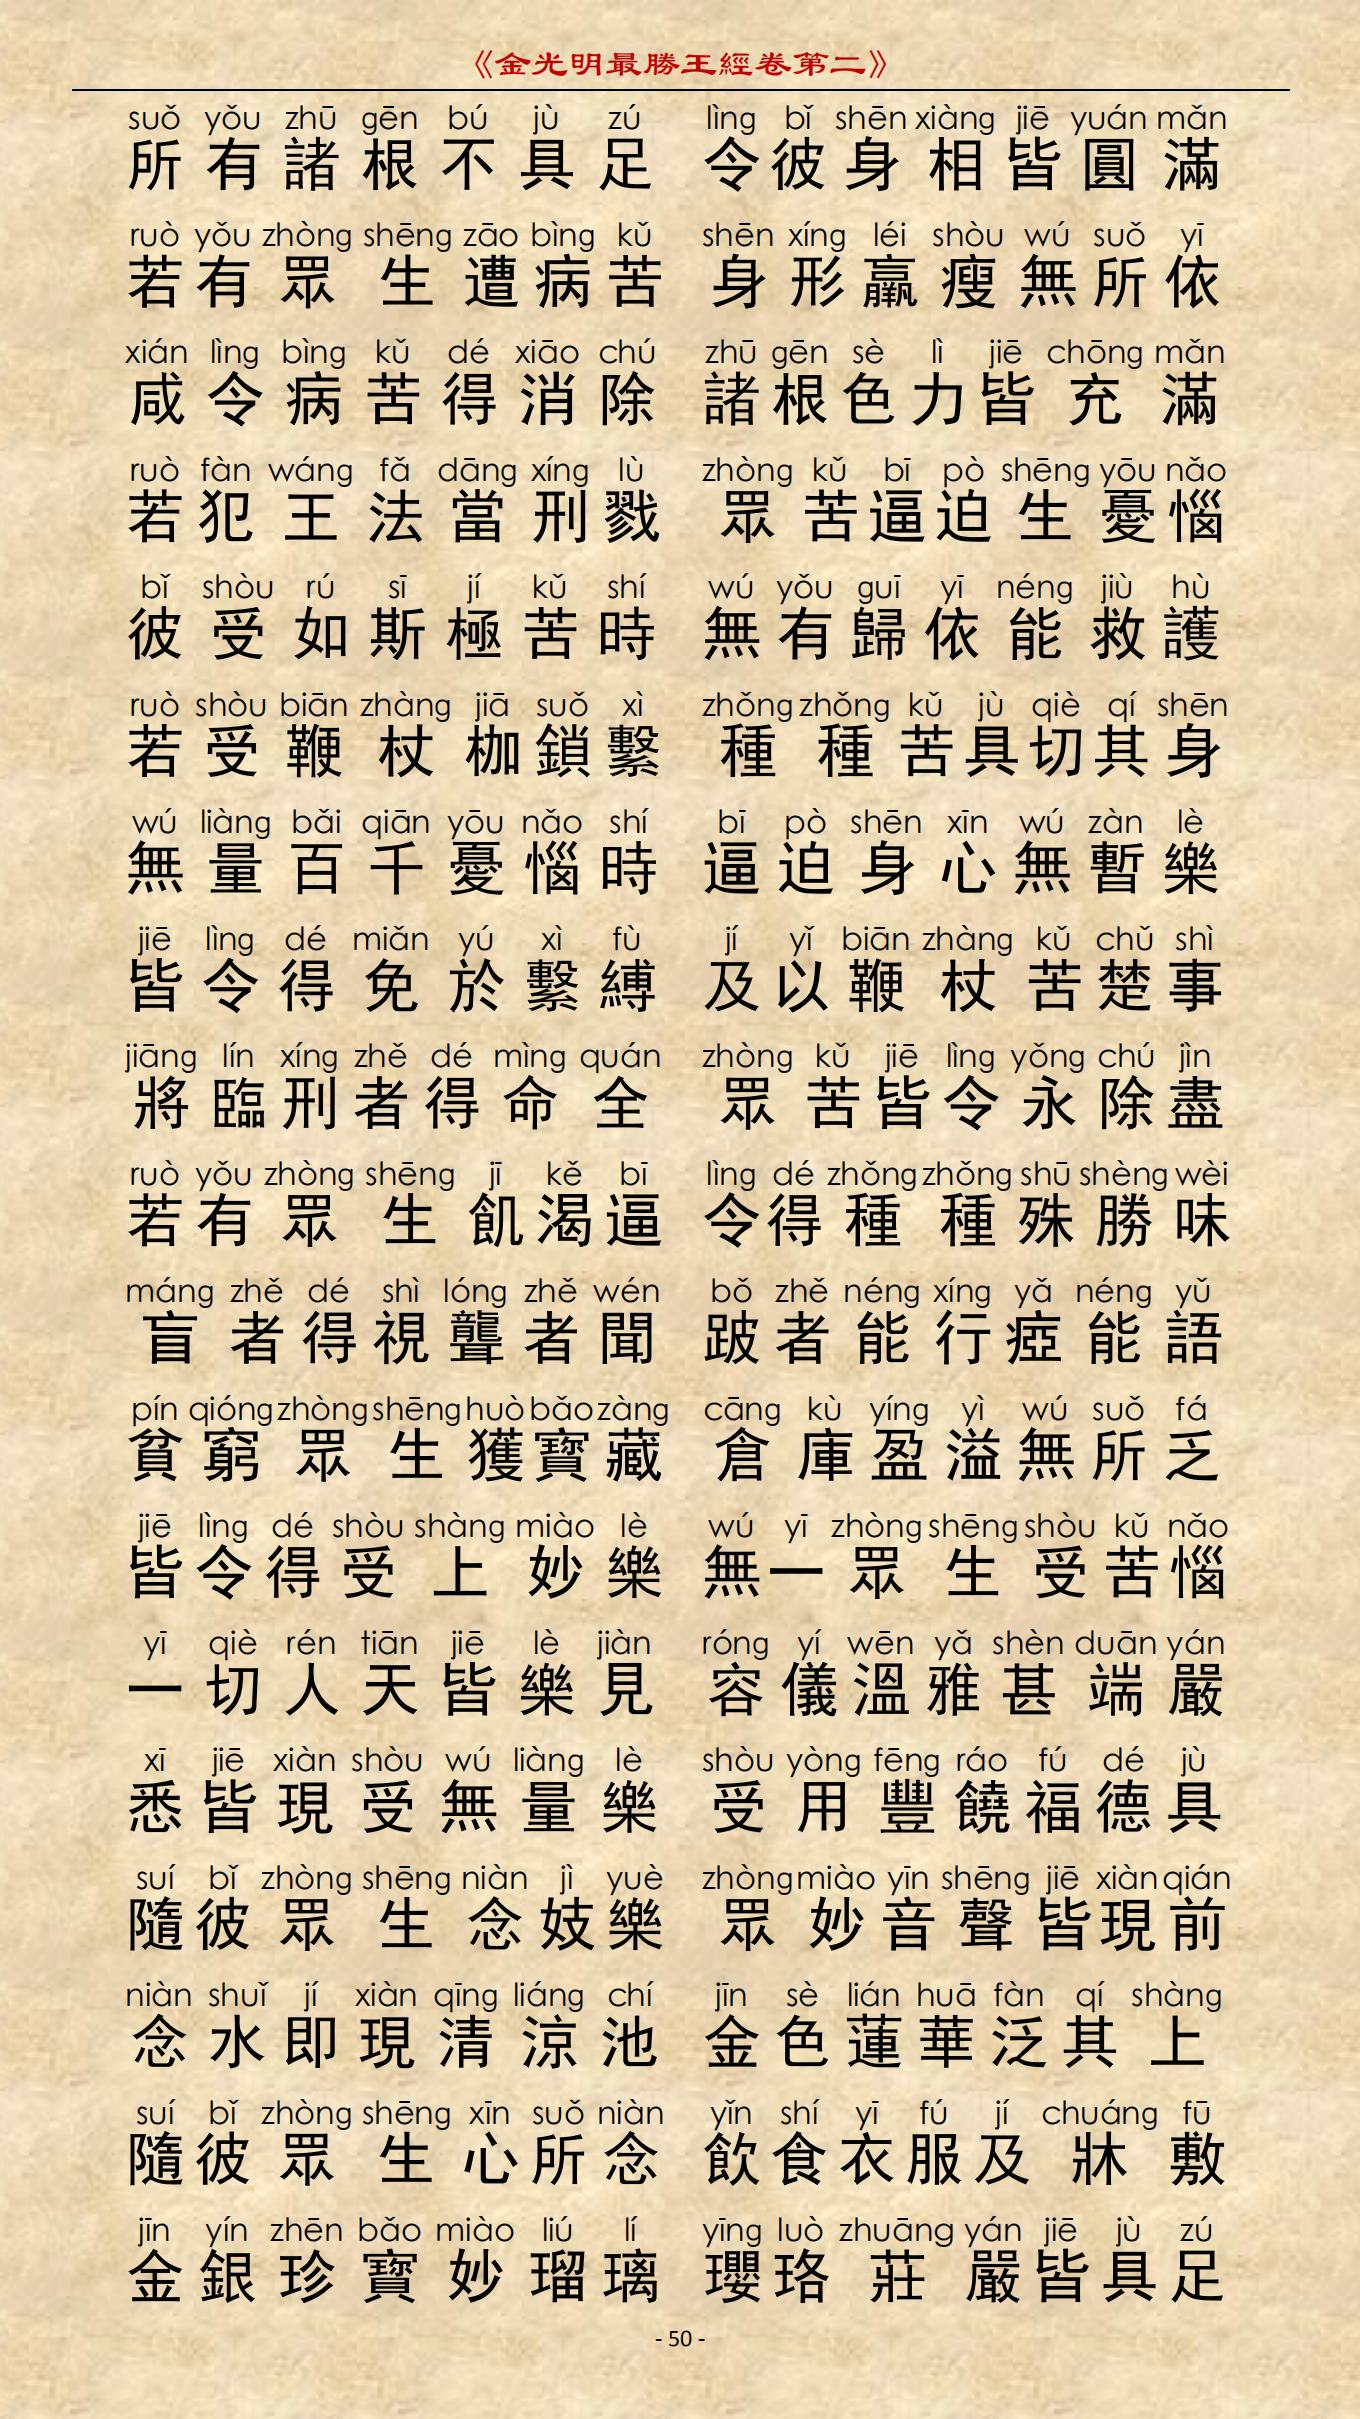 《金光明最勝王經卷第二》
suǒ yǒu zhū gēn bú jù zú lìng bǐ shēn xiàng jiē yuán mǎn
所有諸根不具足 令彼身相皆圓滿
ruò yǒu zhòng shēng zāo bìng kǔ shēn xíng léi shòu wú suǒ yī
若有眾生遭病苦 身形羸瘦無所依
xián lìng bìng kǔ dé xiāo chú zhū gēn sè lì jiē chōng mǎn
咸令病苦得消除 諸根色力皆充滿
ruò fàn wáng fǎ dāng xíng lù zhòng kǔ bī pò shēng yōu nǎo
若犯王法當刑戮 眾苦逼迫生憂惱
bǐ shòu rú sī jí kǔ shí wú yǒu guī yī néng jiù hù
彼受如斯極苦時 無有歸依能救護
ruò shòu biān zhàng jiā suǒ xì zhǒng zhǒng kǔ jù qiè qí shēn
若受鞭杖枷鎖繫 種種苦具切其身
wú liàng bǎi qiān yōu nǎo shí bī pò shēn xīn wú zàn lè
無量百千憂惱時 逼迫身心無暫樂
jiē lìng dé miǎn yú xì fù jí yǐ biān zhàng kǔ chǔ shì
皆令得免於繫縛 及以鞭杖苦楚事
jiāng lín xíng zhě dé mìng quán zhòng kǔ jiē lìng yǒng chú jìn
將臨刑者得命全 眾苦皆令永除盡
ruò yǒu zhòng shēng jī kě bī lìng dé zhǒng zhǒng shū shèng wèi
若有眾生飢渴逼 令得種種殊勝味
máng zhě dé shì lóng zhě wén bǒ zhě néng xíng yǎ néng yǔ
盲者得視聾者聞 跛者能行瘂能語
pín qióng zhòng shēng huò bǎo zàng cāng kù yíng yì wú suǒ fá
貧窮眾生獲寶藏 倉庫盈溢無所乏
jiē lìng dé shòu shàng miào lè wú yī zhòng shēng shòu kǔ nǎo
皆令得受上妙樂 無一眾生受苦惱
yī qiè rén tiān jiē lè jiàn róng yí wēn yǎ shèn duān yán
一切人天皆樂見 容儀溫雅甚端嚴
xī jiē xiàn shòu wú liàng lè shòu yòng fēng ráo fú dé jù
悉皆現受無量樂 受用豐饒福德具
suí bǐ zhòng shēng niàn jì yuè zhòng miào yīn shēng jiē xiàn qián
隨彼眾生念妓樂 眾妙音聲皆現前
niàn shuǐ jí xiàn qīng liáng chí jīn sè lián huā fàn qí shàng
念水即現清涼池 金色蓮華泛其上
suí bǐ zhòng shēng xīn suǒ niàn yǐn shí yī fú jí chuáng fū
隨彼眾生心所念 飲食衣服及牀敷
jīn yín zhēn bǎo miào liú lí yīng luò zhuāng yán jiē jù zú
金銀珍寶妙瑠璃 瓔珞莊嚴皆具足
- 50 -